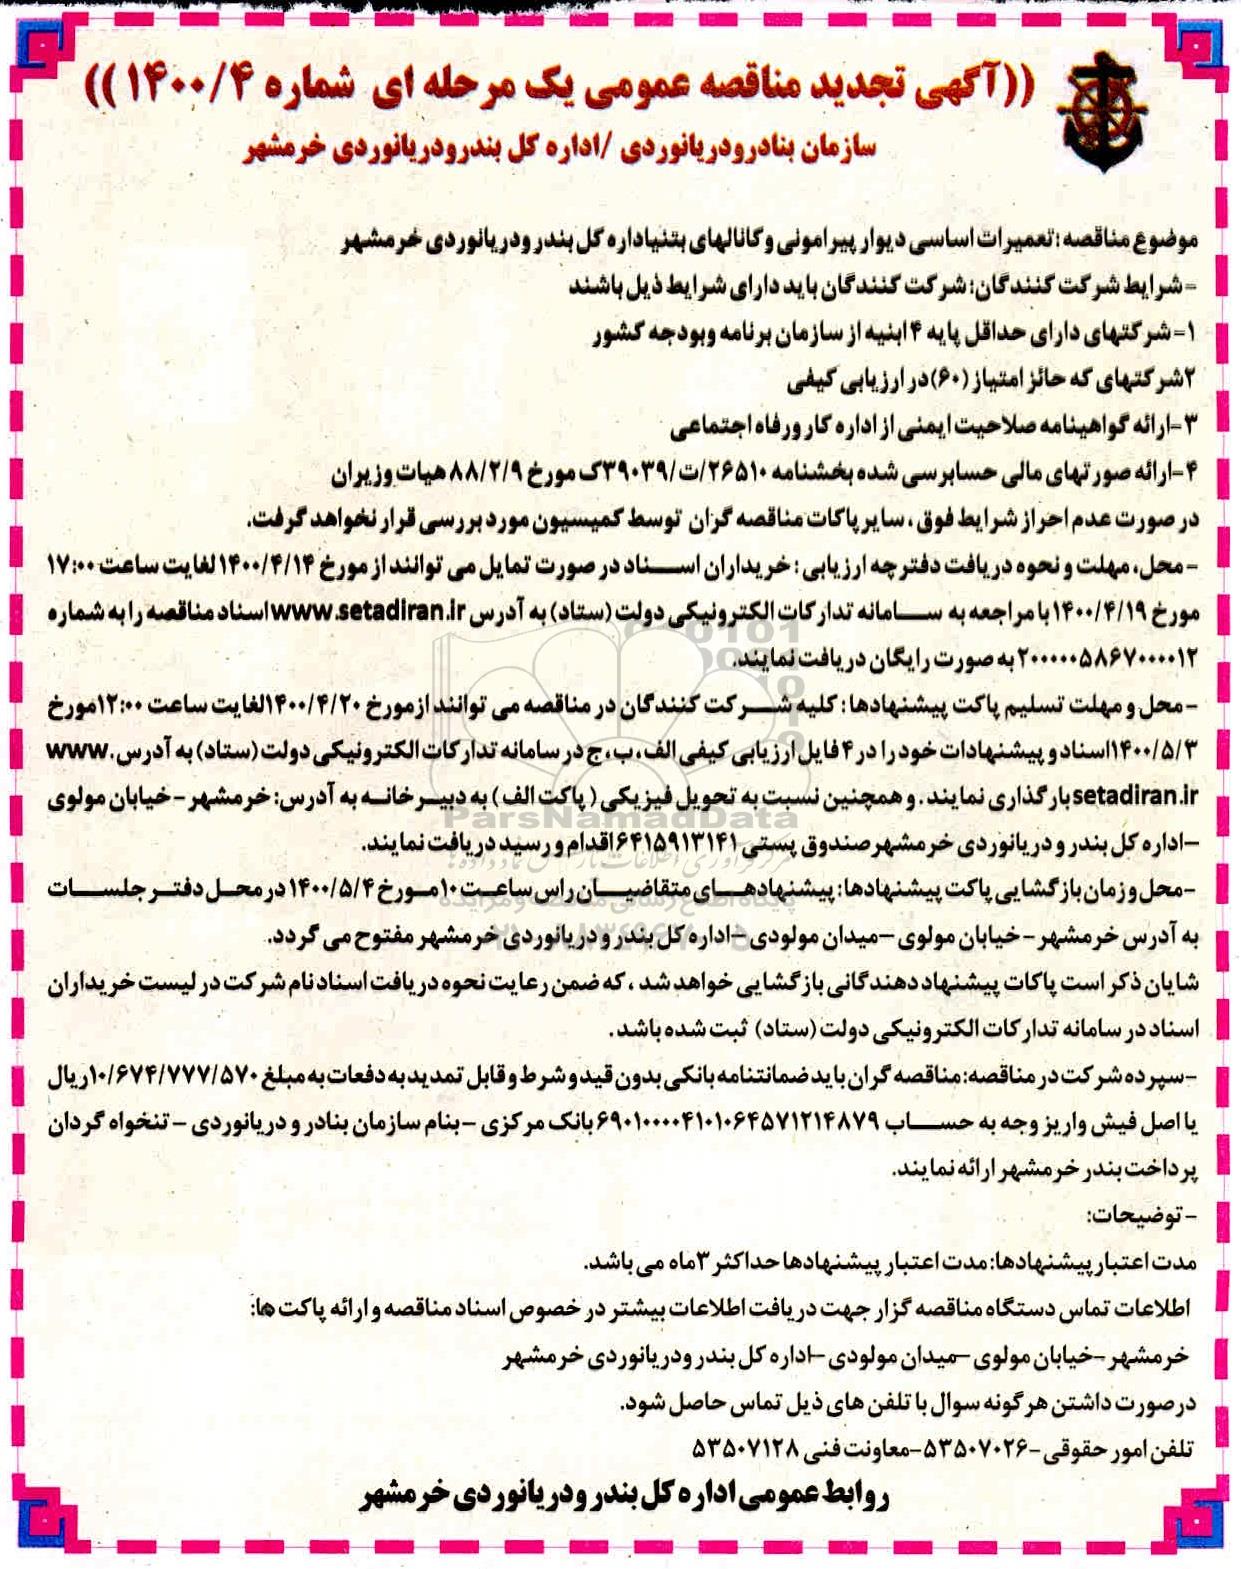 ((آگهی تجدید مناقصه عمومی یک مرحله ای شماره ۱۴۰۰/۴))
سازمان بنادرودریانوردی /اداره کل بندرودریانوردی خرمشهر
موضوع مناقصه :تعمیرات اساسی دیوار پیرامونی وکانالهای بتنیاداره کل بندر ودریانوردی خرمشهر
-شرایط شرکت کنندگان: شرکت کنندگان باید دارای شرایط ذیل باشند
۱-شرکتهای دارای حداقل پایه ۴ ابنیه از سازمان برنامه وبودجه کشور
۲شرکتهای که حائز امتیاز (۶۰)در ارزیابی کیفی
۳-ارائه گواهینامه صلاحیت ایمنی از اداره کار ورفاه اجتماعی
۴-ارائه صورتهای مالی حسابرسی شده بخشنامه ۲۶۵۱۰/ت/۳۹۰۳۹ک مورخ ۸۸/۲/۹ هیات وزیران
در صورت عدم احراز شرایط فوق ، سایر پاکات مناقصه گران توسط کمیسیون مورد بررسی قرار نخواهد گرفت.
- محل، مهلت و نحوه دریافت دفترچه ارزیابی : خریداران اسناد در صورت تمایل می توانند از مورخ ۱۴۰۰/۴/۱۴ لغایت ساعت ۱۷:۰۰
مورخ ۱۴۰۰/۴/۱۹ با مراجعه به سامانه تدارکات الکترونیکی دولت (ستاد) به آدرس www.setadiran.ir اسناد مناقصه را به شماره
۲۰۰۰۰۰۵۸۶۷۰۰۰۰۱۲ به صورت رایگان دریافت نمایند.
- محل و مهلت تسلیم پاکت پیشنهادها : کلیه شرکت کنندگان در مناقصه می توانند ازمورخ ۱۴۰۰/۴/۲۰لغایت ساعت ۱۲:۰۰مورخ
۱۴۰۰/۵/۳اسناد و پیشنهادات خود را در ۴ فایل ارزیابی کیفی الف، ب، ج در سامانه تدارکات الکترونیکی دولت (ستاد) به آدرس www.
setadiran.ir بارگذاری نمایند. و همچنین نسبت به تحویل فیزیکی ( پاکت الف ) به دبیرخانه به آدرس: خرمشهر -خیابان مولوی
-اداره کل بندر و دریانوردی خرمشهر صندوق پستی ۶۴۱۵۹۱۳۱۴۱ اقدام و رسید دریافت نمایند.
-محل وزمان بازگشایی پاکت پیشنهادها: پیشنهادهای متقاضیان راس ساعت ۱۰مورخ ۱۴۰۰/۵/۴ در محل دفتر جلسات
به آدرس خرمشهر - خیابان مولوی -میدان مولودی -اداره کل بندر و دریانوردی خرمشهر مفتوح می گردد.
شایان ذکر است پاکات پیشنهاد دهندگانی بازگشایی خواهد شد ، که ضمن رعایت نحوه دریافت اسناد نام شرکت در لیست خریداران
اسناد در سامانه تدارکات الکترونیکی دولت (ستاد) ثبت شده باشد .
-سپرده شرکت در مناقصه: مناقصه گران باید ضمانتنامه بانکی بدون قید و شرط و قابل تمدید به دفعات به مبلغ ۱۰/۶۷۴/۷۷۷/۵۷۰ریال
یا اصل فیش واریز وجه به حساب ۶۹۰۱۰۰۰۰۴۱۰۱۰۶۴۵۷۱۲۱۴۸۷۹ بانک مرکزی -بنام سازمان بنادر و دریانوردی - تنخواه گردان
پرداخت بندر خرمشهر ارائه نمایند.
- توضیحات:
مدت اعتبار پیشنهادها: مدت اعتبار پیشنهادها حداکثر ۳ماه می باشد.
اطلاعات تماس دستگاه مناقصه گزار جهت دریافت اطلاعات بیشتر در خصوص اسناد مناقصه و ارائه پاکت ها:
خرمشهر -خیابان مولوی -میدان مولودی -اداره کل بندر ودریانوردی خرمشهر
درصورت داشتن هرگونه سوال با تلفن های ذیل تماس حاصل شود.
تلفن امور حقوقی -۵۳۵۰۷۰۲۶-معاونت فنی ۵۳۵۰۷۱۲۸
روابط عمومی اداره کل بندر ودریانوردی خرمشهر
ParsNamadData